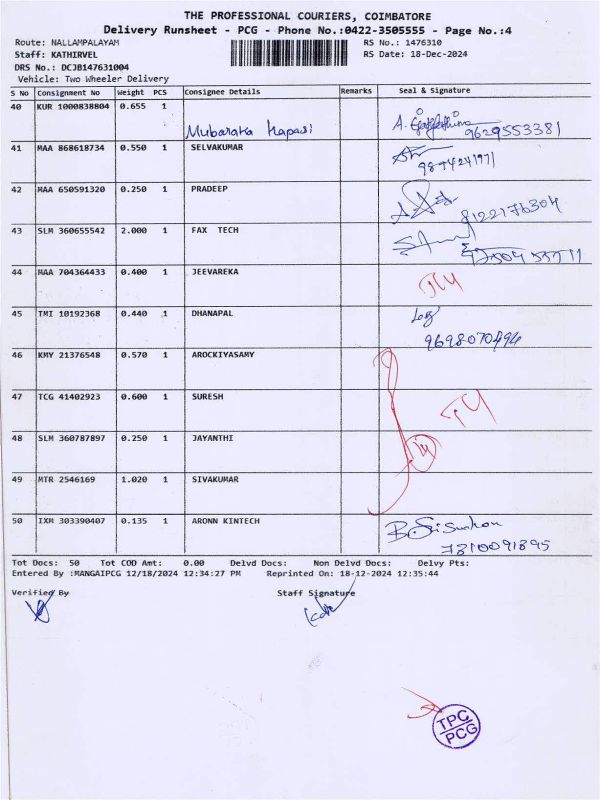 THE PROFESSIONAL COURIERS, COIMBATORE
Delivery Runsheet - PCG - Phone No.:0422-3505555 - Page No.:4
Route: NALLAMPALAYAM RS No.: 1476310
Staff: KATHIRVEL RS Date: 18-Dec-2024
DRS No.: DCJB147631004
Vehicle: Two Wheeler Delivery
S No Consignment No Weight PCS Consignee Details Remarks Seal & Signature
40 KUR 1000838804 0.655 1
Mubaraka Hapasi 9629553381
41 MAA 868618734 0.550 1 SELVAKUMAR
9894241971
42 MAA 650591320 0.250 1 PRADEEP
8122176304
43 SLM 360655542 2.000 1 FAX TECH
44 MAA 704364433 0.400 1 JEEVAREKA
45 TMI 10192368 0.440 1 DHANAPAL
9698070494
46 KMY 21376548 0.570 1 AROCKIYASAMY
47 TCG 41402923 0.600 1 SURESH
48 SLM 360787897 0.250 1 JAYANTHI
49 MTR 2546169 1.020 1 SIVAKUMAR
50 IXM 303390407 0.135 1 ARONN KINTECH
7310091895
Tot Docs: 50 Tot COD Amt: 0.00 Delvd Docs: Non Delvd Docs: Delvy Pts:
Entered By :MANGAIPCG 12/18/2024 12:34:27 PM Reprinted On: 18-12-2024 12:35:44
Verified By Staff Signature
TPC
PCG